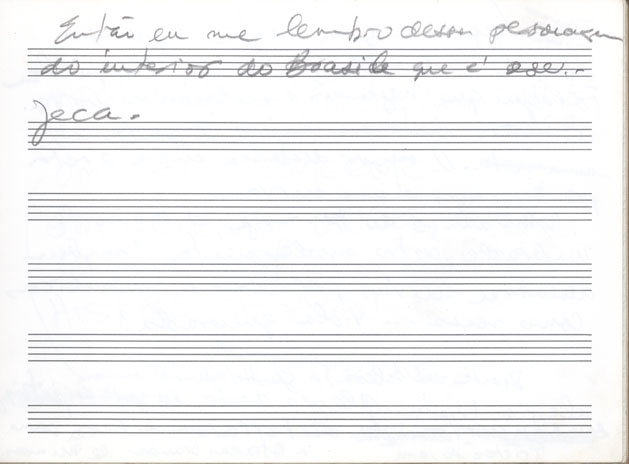 Então eu me lembro desse personagem
do interior do Brasil que é esse..
Jeca.